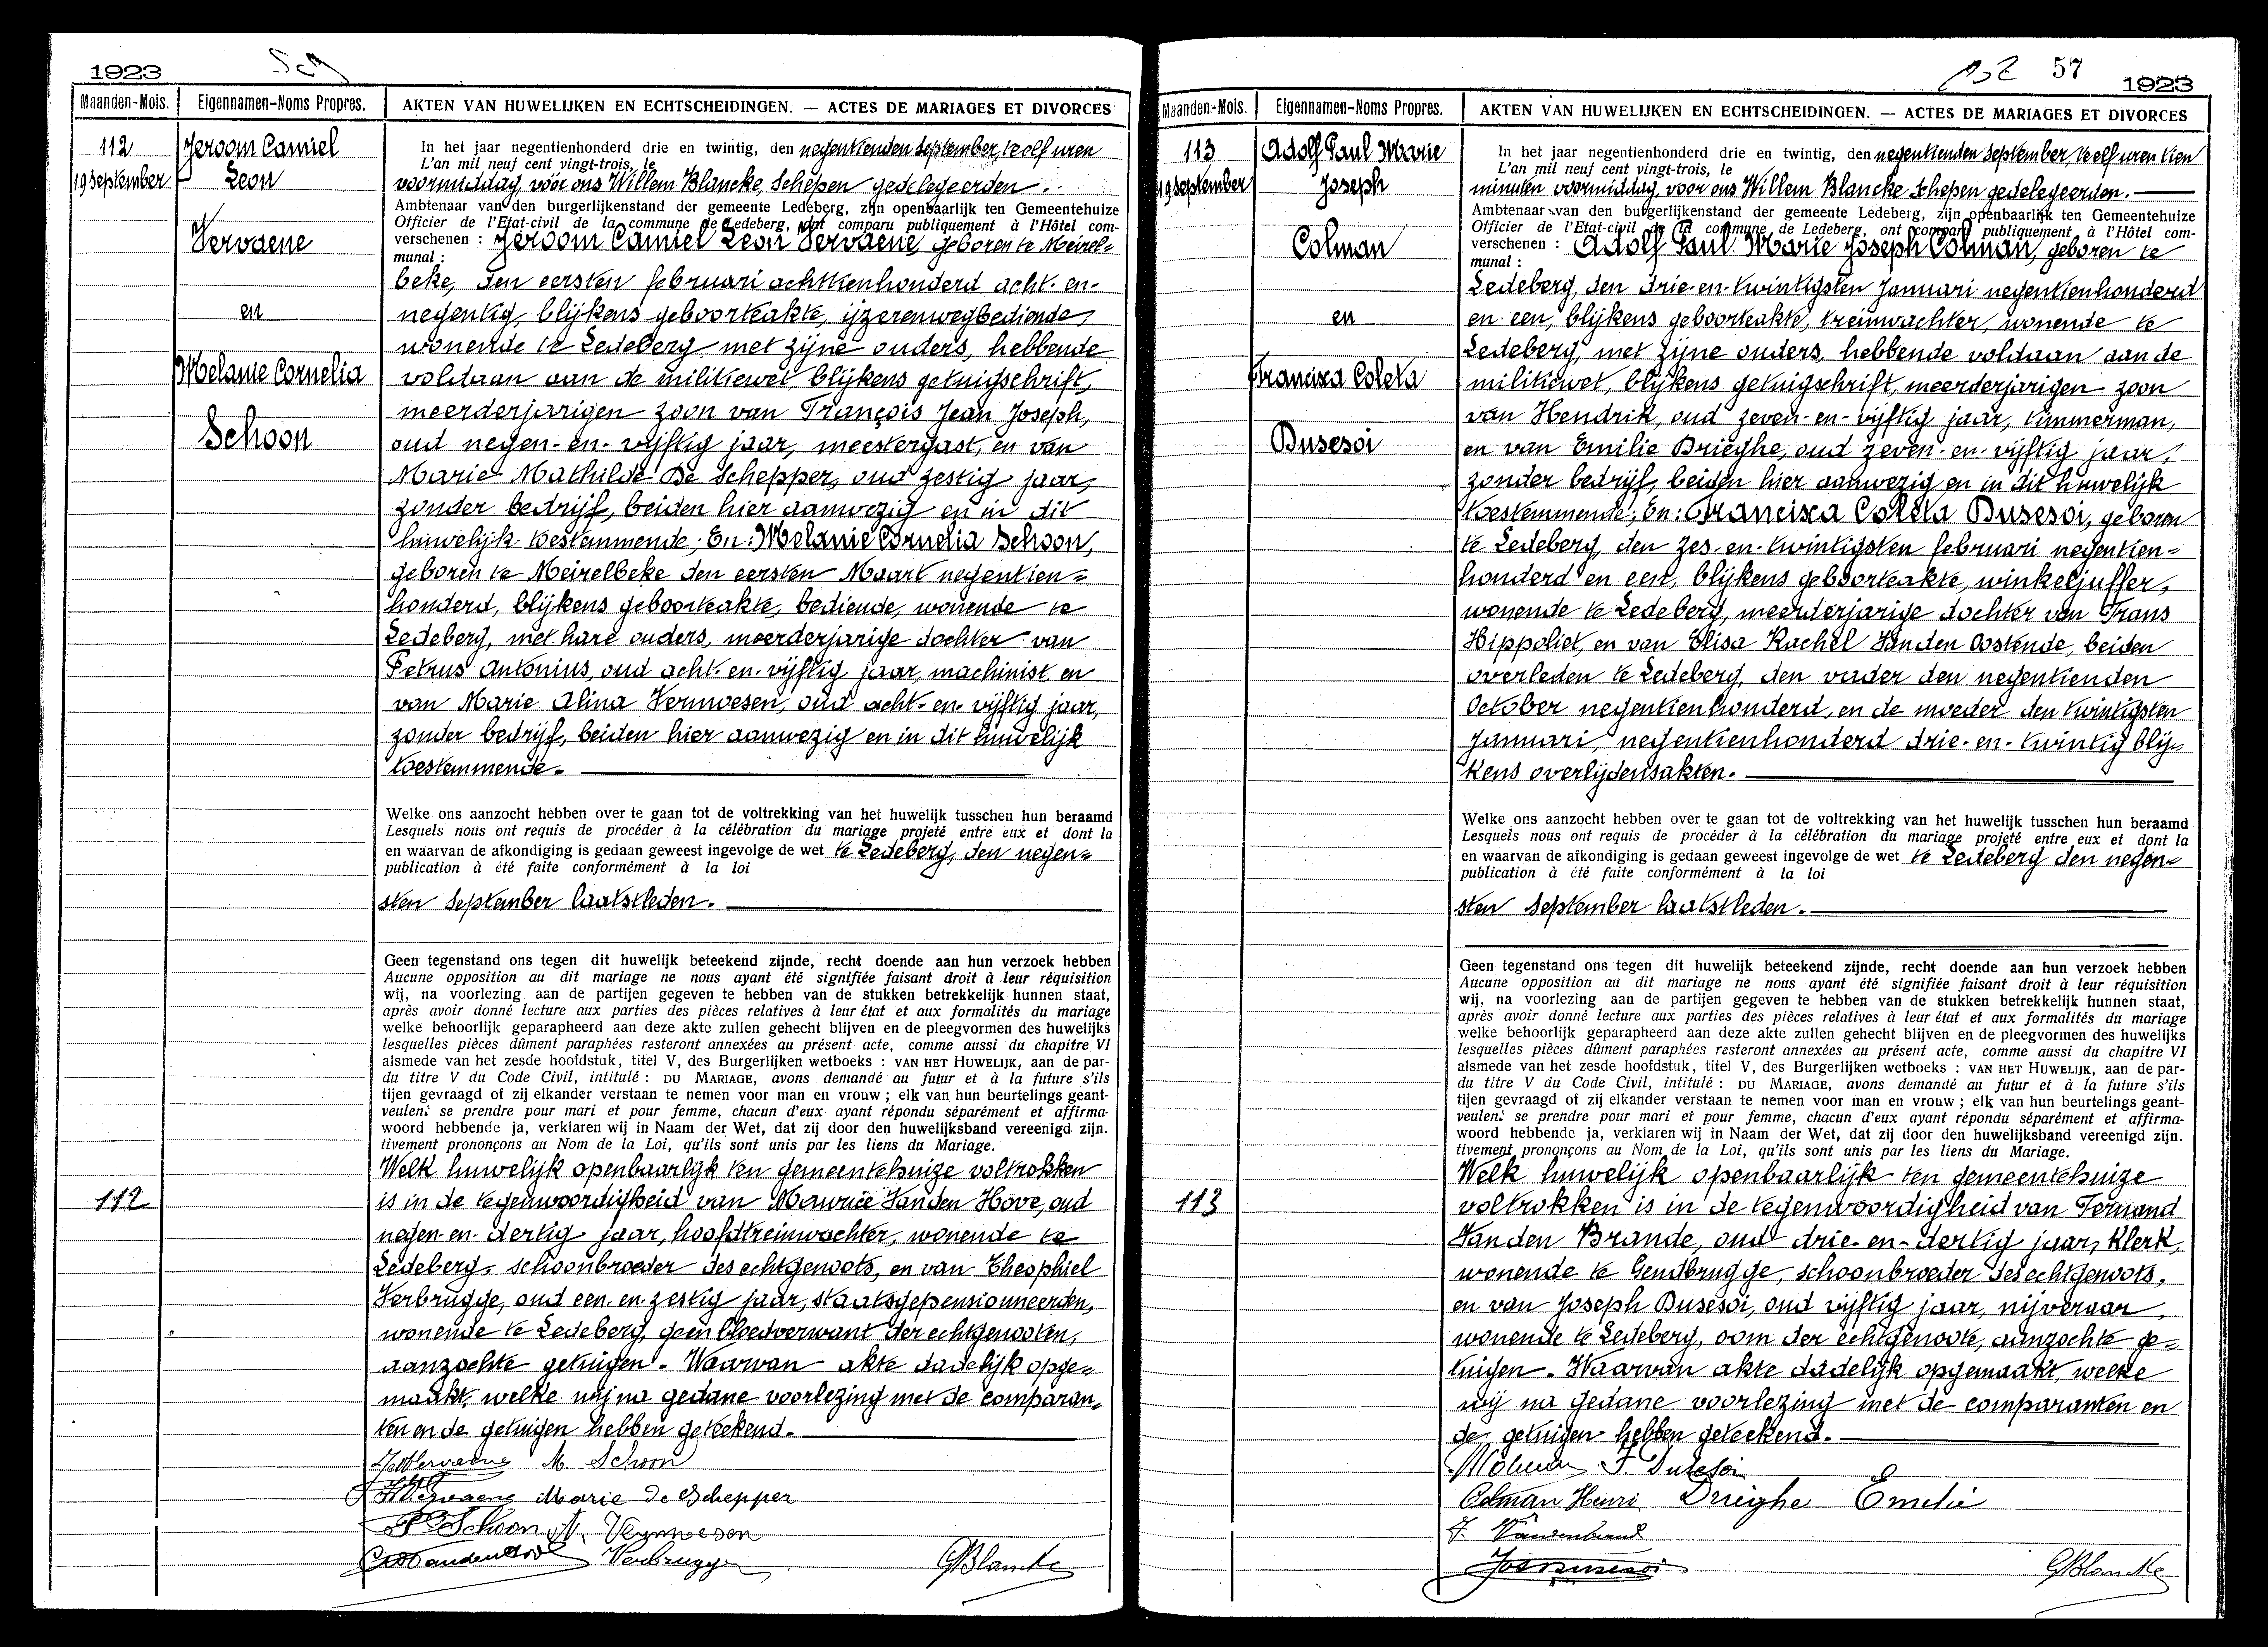 1923
Maanden-Mois. Eigennamen-Noms Propres. AKTEN VAN HUWELIJKEN EN ECHTSCHEIDINGEN. — ACTES DE MARIAGES ET DIVORCES
112
19 September
Jeroom Camiel
Leon
Vervaene
en
Melanie Cornelia
Schoon
In het jaar negentienhonderd drie en twintig, den negentienden September, te elf uren
L'an mil neuf cent vingt-trois, le
voormiddag, vóór ons Willem Blancke, Schepen gedelegeerden
Ambtenaar van den burgerlijkenstand der gemeente Ledeberg, zijn openbaarlijk ten Gemeentehuize
Officier de l'Etat-civil de la commune de Ledeberg, ont comparu publiquement à l'Hôtel com-
verschenen : Jeroom Camiel Leon Vervaene, geboren te Meirel=
munal :
beke, den eersten februari achttienhonderd acht-en-
negentig, blijkens geboorteakte, ijzerenwegbediende,
wonende te Ledeberg met zijne ouders, hebbende
voldaan aan de militiewet, blijkens getuigschrift,
meerderjarigen zoon van François Jean Joseph,
oud negen-en-vijftig jaar, meestergast, en van
Marie Mathilde De Schepper, oud zestig jaar,
zonder bedrijf, beiden hier aanwezig en in dit
huwelijk toestemmende; En: Melanie Cornelia Schoon,
geboren te Meirelbeke den eersten Maart negentien=
honderd, blijkens geboorteakte, bediende, wonende te
Ledeberg, met hare ouders, meerderjarige dochter van
Petrus Antonius, oud acht-en-vijftig jaar, machinist, en
van Marie Alina Vermoesen, oud acht-en-vijftig jaar,
zonder bedrijf, beiden hier aanwezig en in dit huwelijk
toestemmende.
Welke ons aanzocht hebben over te gaan tot de voltrekking van het huwelijk tusschen hun beraamd
Lesquels nous ont requis de procéder à la célébration du mariage projeté entre eux et dont la
en waarvan de afkondiging is gedaan geweest ingevolge de wet te Ledeberg, den negen=
publication à été faite conformément à la loi
sten September laatstleden.
Geen tegenstand ons tegen dit huwelijk beteekend zijnde, recht doende aan hun verzoek hebben
Aucune opposition au dit mariage ne nous ayant été signifiée faisant droit à leur réquisition
wij, na voorlezing aan de partijen gegeven te hebben van de stukken betrekkelijk hunnen staat,
après avoir donné lecture aux parties des pièces relatives à leur état et aux formalités du mariage
welke behoorlijk geparapheerd aan deze akte zullen gehecht blijven en de pleegvormen des huwelijks
lesquelles pièces dûment paraphées resteront annexées au présent acte, comme aussi du chapitre VI
alsmede van het zesde hoofdstuk, titel V, des Burgerlijken wetboeks : VAN HET HUWELIJK, aan de par-
du titre V du Code Civil, intitulé : DU MARIAGE, avons demandé au futur et à la future s'ils
tijen gevraagd of zij elkander verstaan te nemen voor man en vrouw ; elk van hun beurtelings geant-
veulent se prendre pour mari et pour femme, chacun d'eux ayant répondu séparément et affirma-
woord hebbende ja, verklaren wij in Naam der Wet, dat zij door den huwelijksband vereenigd zijn.
tivement prononçons au Nom de la Loi, qu'ils sont unis par les liens du Mariage.
112
Welk huwelijk openbaarlijk ten gemeentehuize voltrokken
is in de tegenwoordigheid van Maurice Vanden Hove, oud
negen-en-dertig jaar, hoofdtreinwachter, wonende te
Ledeberg, schoonbroeder des echtgenoots, en van Theophiel
Verbrugge, oud een-en-zestig jaar, staatsgepensionneerden,
wonende te Ledeberg, geen bloedverwant der echtgenooten,
aanzochte getuigen. Waarvan akte dadelijk opge=
maakt, welke wij na gedane voorlezing met de comparan=
ten en de getuigen hebben geteekend.
Vervaene M. Schoon
Vervaene Marie De Schepper
P. Schoon Vermoesen
Vandenhove Verbrugge GBlancke
57
1923
Maanden-Mois. Eigennamen-Noms Propres. AKTEN VAN HUWELIJKEN EN ECHTSCHEIDINGEN. — ACTES DE MARIAGES ET DIVORCES
113
19 September
Adolf Paul Marie
Joseph
Colman
en
Francisca Coleta
Busesoi
In het jaar negentienhonderd drie en twintig, den negentienden September, te elf uren tien
L'an mil neuf cent vingt-trois, le
minuten voormiddag, voor ons Willem Blancke Schepen gedelegeerden.
Ambtenaar van den burgerlijkenstand der gemeente Ledeberg, zijn openbaarlijk ten Gemeentehuize
Officier de l'Etat-civil de la commune de Ledeberg, ont comparu publiquement à l'Hôtel com-
verschenen : Adolf Paul Marie Joseph Colman, geboren te
munal :
Ledeberg, den drie-en-twintigsten Januari negentienhonderd
en-een, blijkens geboorteakte, treinwachter, wonende te
Ledeberg, met zijne ouders, hebbende voldaan aan de
militiewet, blijkens getuigschrift, meerderjarigen zoon
van Hendrik, oud zeven-en-vijftig jaar, timmerman,
en van Emilie Drieghe, oud zeven-en-vijftig jaar,
zonder bedrijf, beiden hier aanwezig en in dit huwelijk
toestemmende; En: Francisca Coleta Busesoi, geboren
te Ledeberg, den zes-en-twintigsten februari negentien=
honderd en een, blijkens geboorteakte, winkeljuffer,
wonende te Ledeberg, meerderjarige dochter van Frans
Hippoliet, en van Elisa Rachel Vanden Oostende, beiden
overleden te Ledeberg, den vader den negentienden
October negentienhonderd, en de moeder den twintigsten
Januari, negentienhonderd drie-en-twintig blij=
kens overlijdensakten.
Welke ons aanzocht hebben over te gaan tot de voltrekking van het huwelijk tusschen hun beraamd
Lesquels nous ont requis de procéder à la célébration du mariage projeté entre eux et dont la
en waarvan de afkondiging is gedaan geweest ingevolge de wet te Ledeberg den negen=
publication à été faite conformément à la loi
sten September laatstleden.
Geen tegenstand ons tegen dit huwelijk beteekend zijnde, recht doende aan hun verzoek hebben
Aucune opposition au dit mariage ne nous ayant été signifiée faisant droit à leur réquisition
wij, na voorlezing aan de partijen gegeven te hebben van de stukken betrekkelijk hunnen staat,
après avoir donné lecture aux parties des pièces relatives à leur état et aux formalités du mariage
welke behoorlijk geparapheerd aan deze akte zullen gehecht blijven en de pleegvormen des huwelijks
lesquelles pièces dûment paraphées resteront annexées au présent acte, comme aussi du chapitre VI
alsmede van het zesde hoofdstuk, titel V, des Burgerlijken wetboeks : VAN HET HUWELIJK, aan de par-
du titre V du Code Civil, intitulé : DU MARIAGE, avons demandé au futur et à la future s'ils
tijen gevraagd of zij elkander verstaan te nemen voor man en vrouw ; elk van hun beurtelings geant-
veulent se prendre pour mari et pour femme, chacun d'eux ayant répondu séparément et affirma-
woord hebbende ja, verklaren wij in Naam der Wet, dat zij door den huwelijksband vereenigd zijn.
tivement prononçons au Nom de la Loi, qu'ils sont unis par les liens du Mariage.
113
Welk huwelijk openbaarlijk ten gemeentehuize
voltrokken is in de tegenwoordigheid van Fernand
Vanden Brande, oud drie-en-dertig jaar, klerk,
wonende te Gendbrugge, schoonbroeder des echtgenoots,
en van Joseph Busesoi, oud vijftig jaar, nijveraar,
wonende te Ledeberg, oom der echtgenoote, aanzochte ge=
tuigen. Waarvan akte dadelijk opgemaakt, welke
wij na gedane voorlezing met de comparanten en
de getuigen hebben geteekend.
Colman F. Busesoi
Colman Henri Drieghe Emelie
F. Vandenbrand
Jos Busesoi GBlancke